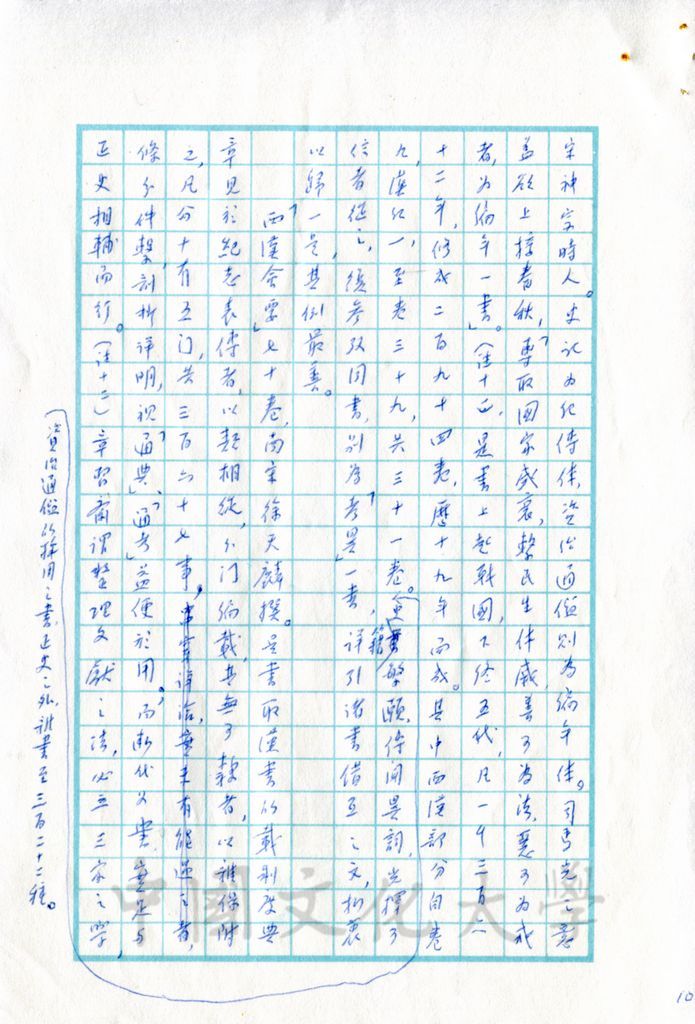 宋神宗時人。史記為紀傳体，資治通鑑則為編年体。司馬光之意
蓋欲上接春秋，「專取國家盛衰，繫民生休戚，善可為法，惡可為戒
者，為編年一書。」（註十一）是書上起戰國，下終五代，凡一千三百六
十二年，修成二百九十四卷，歷十九年而成。其中西漢部分自卷
九漢紀一，至卷三十九，共三十一卷。史籍繁賾，傳聞異詞，光擇可
信者從之，復參攷同書，別為「考異」一書，詳引諸書錯互之文，折衷
以歸一是其例最善。
「西漢會要」七十卷，南宋徐天麟撰。是書取漢書所載制度典
章見於紀志表傳者，以類相從，分門編載，其無可隸者，以雜傳附
之，凡分十有五門，共三百六十七事，
條分件繫，剖析詳明，視「通典」、「通考」益便於用。而斷代文獻，實足与
正史相輔而行。（註十二）章習齋謂整理文獻之法，必立三家之學，
（資治通鑑所採用之書，正史之外，雜書至三百二十二種。
中國文化大學
10